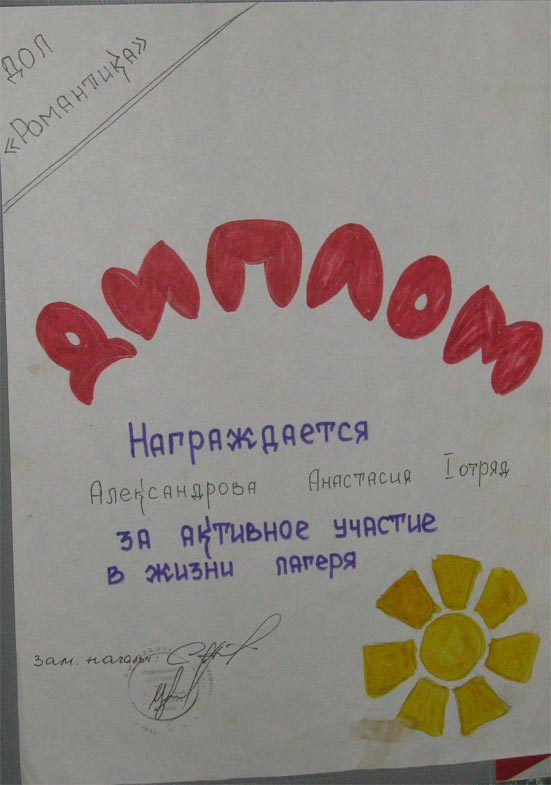 ДОЛ
«Романтика»
ДИПЛОМ
Награждается
Александрова Анастасия I отряд
за активное участие
в жизни лагеря
зам. начальн: